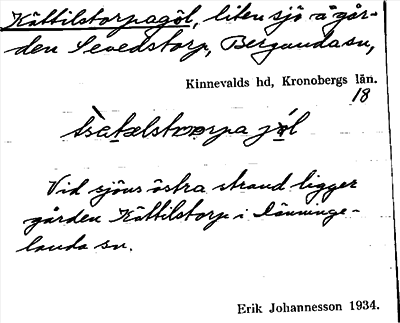 Kättilstorpagöl, liten sjö å går-
den Sevedstorp, Bergunda sn,
Kinnevalds hd, Kronobergs län.
18
Vid sjöns östra strand ligger
gården Kättilstorp i Vänninge-
landa sn.
Erik Johannesson 1934.